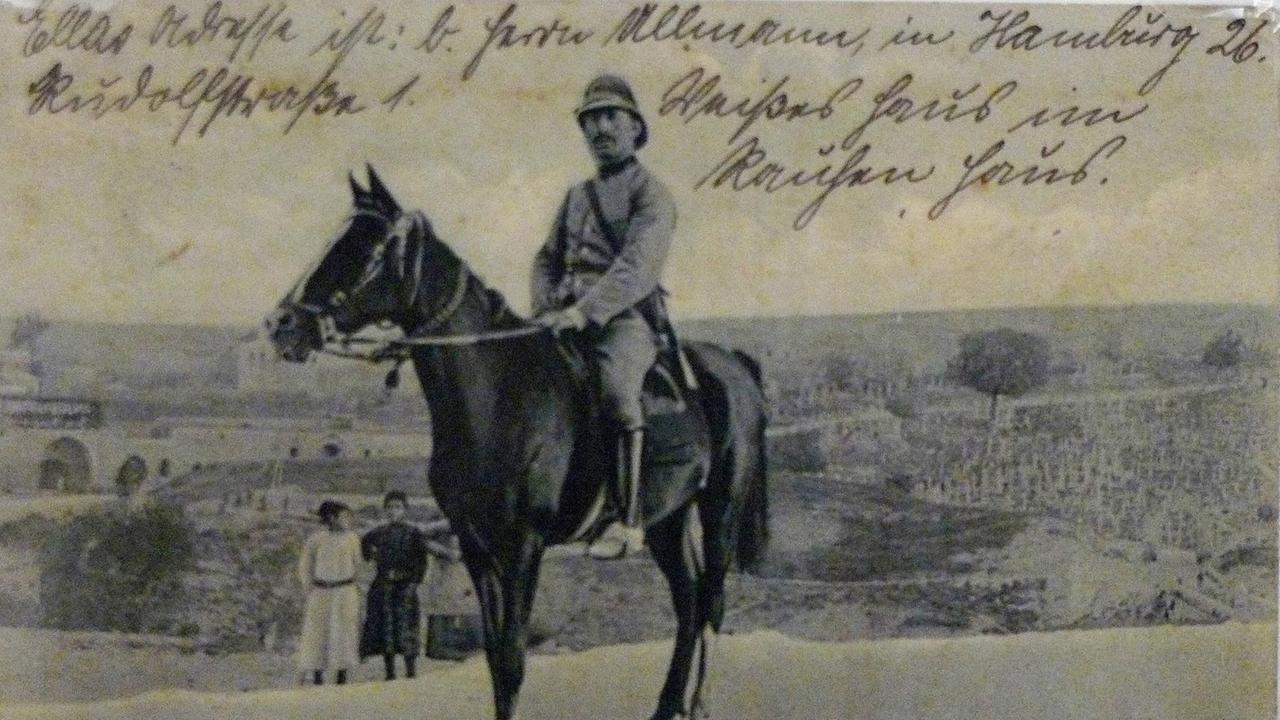 Ellas Adresse ist: b. Herrn Ullmann, in Hamburg 26.
Rudolfstraße 1. Weißes Haus im
Rauhen Haus.